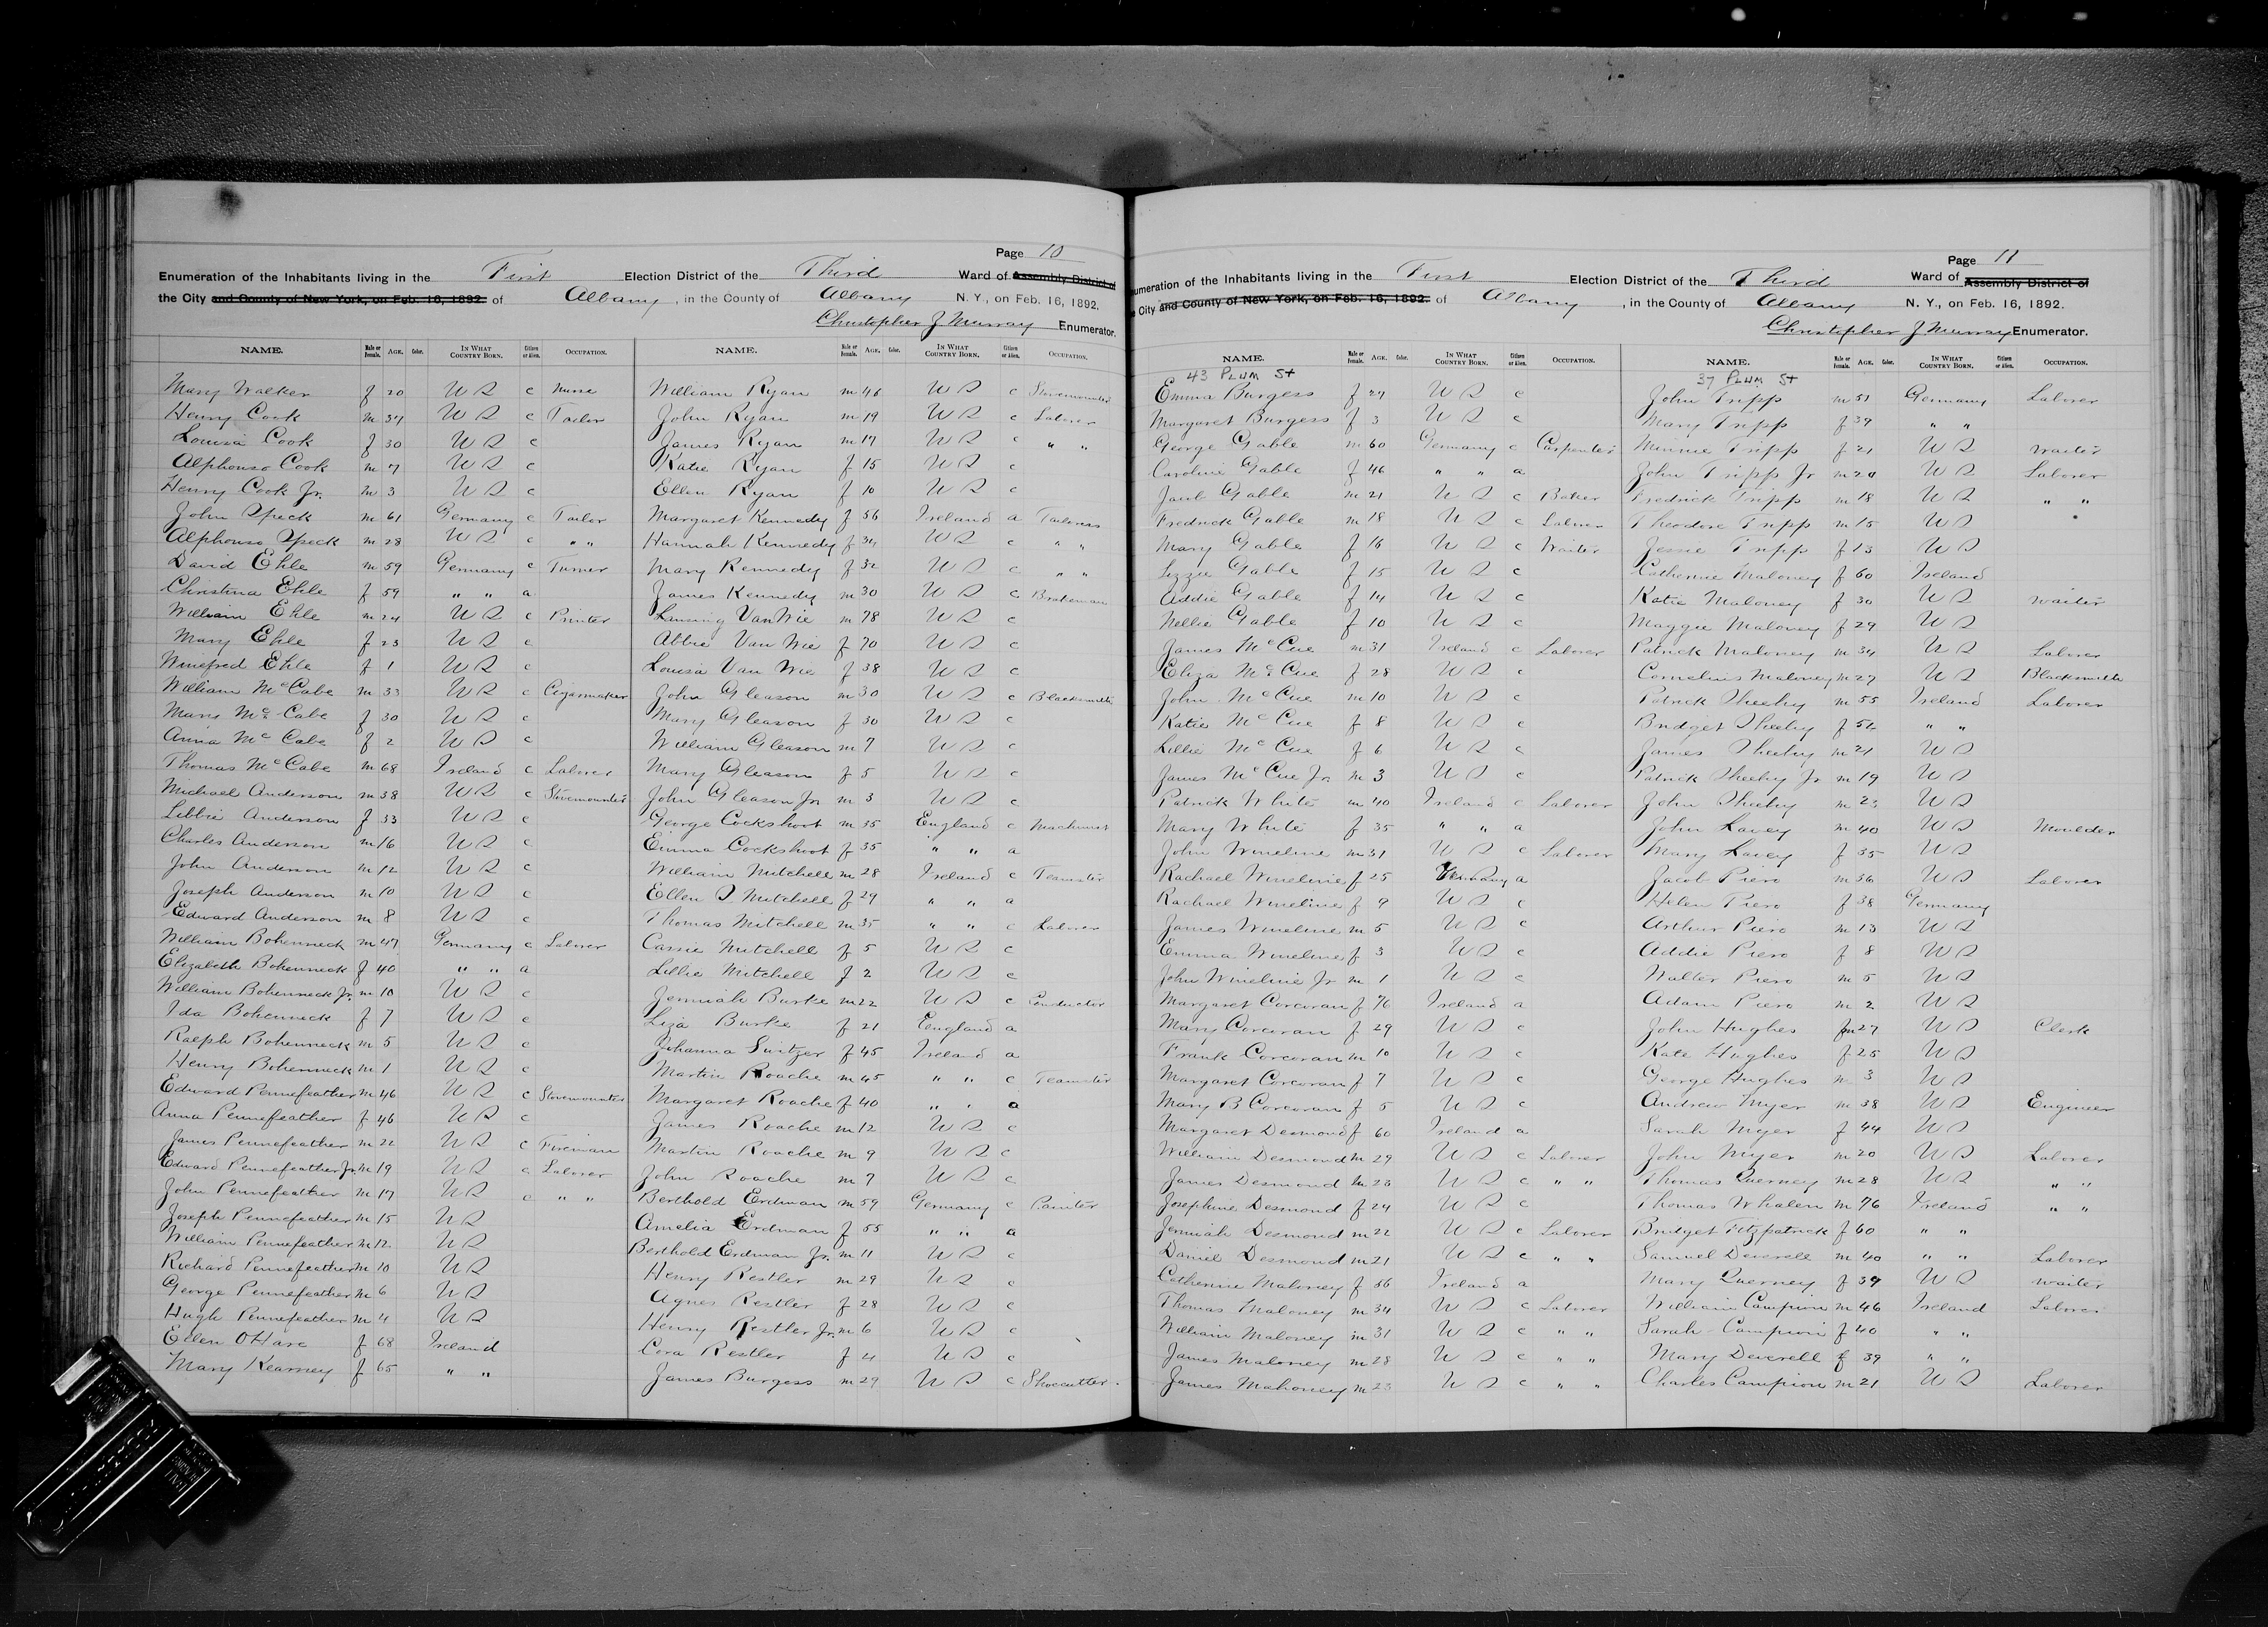 Page 10
Enumeration of the Inhabitants living in the First Election District of the Third Ward of Assembly District of
the City and County of New York, on Feb. 16, 1892. of Albany, in the County of Albany N. Y., on Feb. 16, 1892.
Christopher J Murray Enumerator.
NAME. Male or Female. AGE. Color. IN WHAT COUNTRY BORN. Citizen or Alien. OCCUPATION.
Mary Walker f 20 U S c Nurse
Henry Cook m 37 U S c Tailor
Louisa Cook f 30 U S c
Alphonso Cook m 7 U S c
Henry Cook Jr. m 3 U S c
John Speck m 61 Germany c Tailor
Alphonso Speck m 28 U S c " "
David Ehle m 59 Germany c Turner
Christina Ehle f 59 " " a
William Ehle m 24 U S c Printer
Mary Ehle f 23 U S c
Winefred Ehle f 1 U S c
William McCabe m 33 U S c Cigarmaker
Mary McCabe f 30 U S c
Anna McCabe f 2 U S c
Thomas McCabe m 68 Ireland c Laborer
Michael Anderson m 38 U S c Stovemounter
Libbie Anderson f 33 U S c
Charles Anderson m 16 U S c
John Anderson m 12 U S c
Joseph Anderson m 10 U S c
Edward Anderson m 8 U S c
William Bohenneck m 47 Germany c Laborer
Elizabeth Bohenneck f 40 " " a
William Bohenneck Jr. m 10 U S c
Ida Bohenneck f 7 U S c
Ralph Bohenneck m 5 U S c
Henry Bohenneck m 1 U S c
Edward Pennefeather m 46 U S c Stovemounter
Anna Pennefeather f 46 U S c
James Pennefeather m 22 U S c Fireman
Edward Pennefeather Jr m 19 U S c Laborer
John Pennefeather m 17 U S c " "
Joseph Pennefeather m 15 U S
William Pennefeather m 12 U S
Richard Pennefeather m 10 U S
George Pennefeather m 6 U S
Hugh Pennefeather m 4 U S
Ellen OHare f 68 Ireland
Mary Kearney f 65 " "
NAME. Male or Female. AGE. Color. IN WHAT COUNTRY BORN. Citizen or Alien. OCCUPATION.
William Ryan m 46 U S c Stovemounter
John Ryan m 19 U S c Laborer
James Ryan m 17 U S c " "
Katie Ryan f 15 U S c
Ellen Ryan f 10 U S c
Margaret Kennedy f 56 Ireland a Tailoress
Hannah Kennedy f 34 U S c " "
Mary Kennedy f 32 U S c " "
James Kennedy m 30 U S c Brakeman
Lansing VanWie m 78 U S c
Abbie Van Wie f 70 U S c
Louisa Van Wie f 38 U S c
John Gleason m 30 U S c Blacksmith
Mary Gleason f 30 U S c
William Gleason m 7 U S c
Mary Gleason f 5 U S c
John Gleason Jr. m 3 U S c
George Cockshoot m 35 England c Machinist
Emma Cockshoot f 35 " " a
William Mitchell m 28 Ireland c Teamster
Ellen S Mitchell f 29 " " a
Thomas Mitchell m 35 " " c Laborer
Cassie Mitchell f 5 U S c
Lillie Mitchell f 2 U S c
Jermiah Burke m 22 U S c Conductor
Liza Burke f 21 England a
Johanna Switzer f 45 Ireland a
Martin Roache m 45 " " c Teamster
Margaret Roache f 40 " " a
James Roache m 12 U S c
Martin Roache m 9 U S c
John Roache m 7 U S c
Berthold Erdman m 59 Germany c Painter
Amelia Erdman f 55 " " a
Berthold Erdman Jr. m 11 U S c
Henry Restler m 29 U S c
Agnes Restler f 28 U S c
Henry Restler Jr. m 6 U S c
Cora Restler f 4 U S c
James Burgess m 29 U S c Shoecutter
Page 11
umeration of the Inhabitants living in the First Election District of the Third Ward of Assembly District of
City and County of New York, on Feb. 16, 1892. of Albany, in the County of Albany N. Y., on Feb. 16, 1892.
Christopher J Murray Enumerator.
NAME. Male or Female. AGE. Color. IN WHAT COUNTRY BORN. Citizen or Alien. OCCUPATION.
43 PLUM St
Emma Burgess f 27 U S c
Margaret Burgess f 3 U S c
George Gable m 60 Germany c Carpenter
Caroline Gable f 46 " " a
Jacob Gable m 21 U S c Baker
Fredrick Gable m 18 U S c Laborer
Mary Gable f 16 U S c Waiter
Lizzie Gable f 15 U S c
Addie Gable f 14 U S c
Nellie Gable f 10 U S c
James McCue m 31 Ireland c Laborer
Eliza McCue f 28 U S c
John McCue m 10 U S c
Katie McCue f 8 U S c
Lillie McCue f 6 U S c
James McCue Jr. m 3 U S c
Patrick White m 40 Ireland c Laborer
Mary White f 35 " " a
John Wineline m 31 U S c Laborer
Rachael Wineline f 25 Germany a
Rachael Wineline f 9 U S c
James Wineline m 5 U S c
Emma Wineline f 3 U S c
John Wineline Jr m 1 U S c
Margaret Corcoran f 76 Ireland a
Mary Corcoran f 29 U S c
Frank Corcoran m 10 U S c
Margaret Corcoran f 7 U S c
Mary B Corcoran f 5 U S c
Margaret Desmond f 60 Ireland a
William Desmond m 29 U S c Laborer
James Desmond m 23 U S c " "
Josephine Desmond f 24 U S c
Jermiah Desmond m 22 U S c Laborer
Daniel Desmond m 21 U S c " "
Catherine Mahoney f 56 Ireland a
Thomas Maloney m 34 U S c Laborer
William Maloney m 31 U S c " "
James Maloney m 28 U S c " "
James Mahoney m 23 U S c " "
NAME. Male or Female. AGE. Color. IN WHAT COUNTRY BORN. Citizen or Alien. OCCUPATION.
37 PLUM St
John Tripp m 51 Germany Laborer
Mary Tripp f 39 " "
Minnie Tripp f 21 U S waiter
John Tripp Jr m 20 U S Laborer
Fredrick Tripp m 18 U S " "
Theodore Tripp m 15 U S
Jessie Tripp f 13 U S
Catherine Maloney f 60 Ireland
Katie Maloney f 30 U S waiter
Maggie Maloney f 29 U S
Patrick Maloney m 34 U S Laborer
Cornelius Maloney m 27 U S Blacksmith
Patrick Sheehy m 55 Ireland Laborer
Bridget Sheehy f 52 " "
James Sheehy m 21 U S
Patrick Sheehy Jr m 19 U S
John Sheehy m U S
John Lavey m 40 U S Moulder
Mary Lavey f 35 U S
Jacob Piero m 36 U S Laborer
Helen Piero f 38 Germany
Arthur Piero m 13 U S
Addie Piero f 8 U S
Walter Piero m 5 U S
Adam Piero m 2 U S
John Hughes m 27 U S Clerk
Kate Hughes f 25 U S
George Hughes m 3 U S
Andrew Myer m 38 U S Engineer
Sarah Myer f 44 U S
John Myer m 20 U S Laborer
Thomas Querney m 28 U S " "
Thomas Whalen m 76 Ireland " "
Bridget Fitzpatrick f 60 " "
Samuel Deverell m 40 " " Laborer
Mary Querney f 39 U S waiter
William Campion m 46 Ireland Laborer
Sarah Campion f 40 " "
Mary Deverell f 39 " "
Charles Campion m 21 U S Laborer